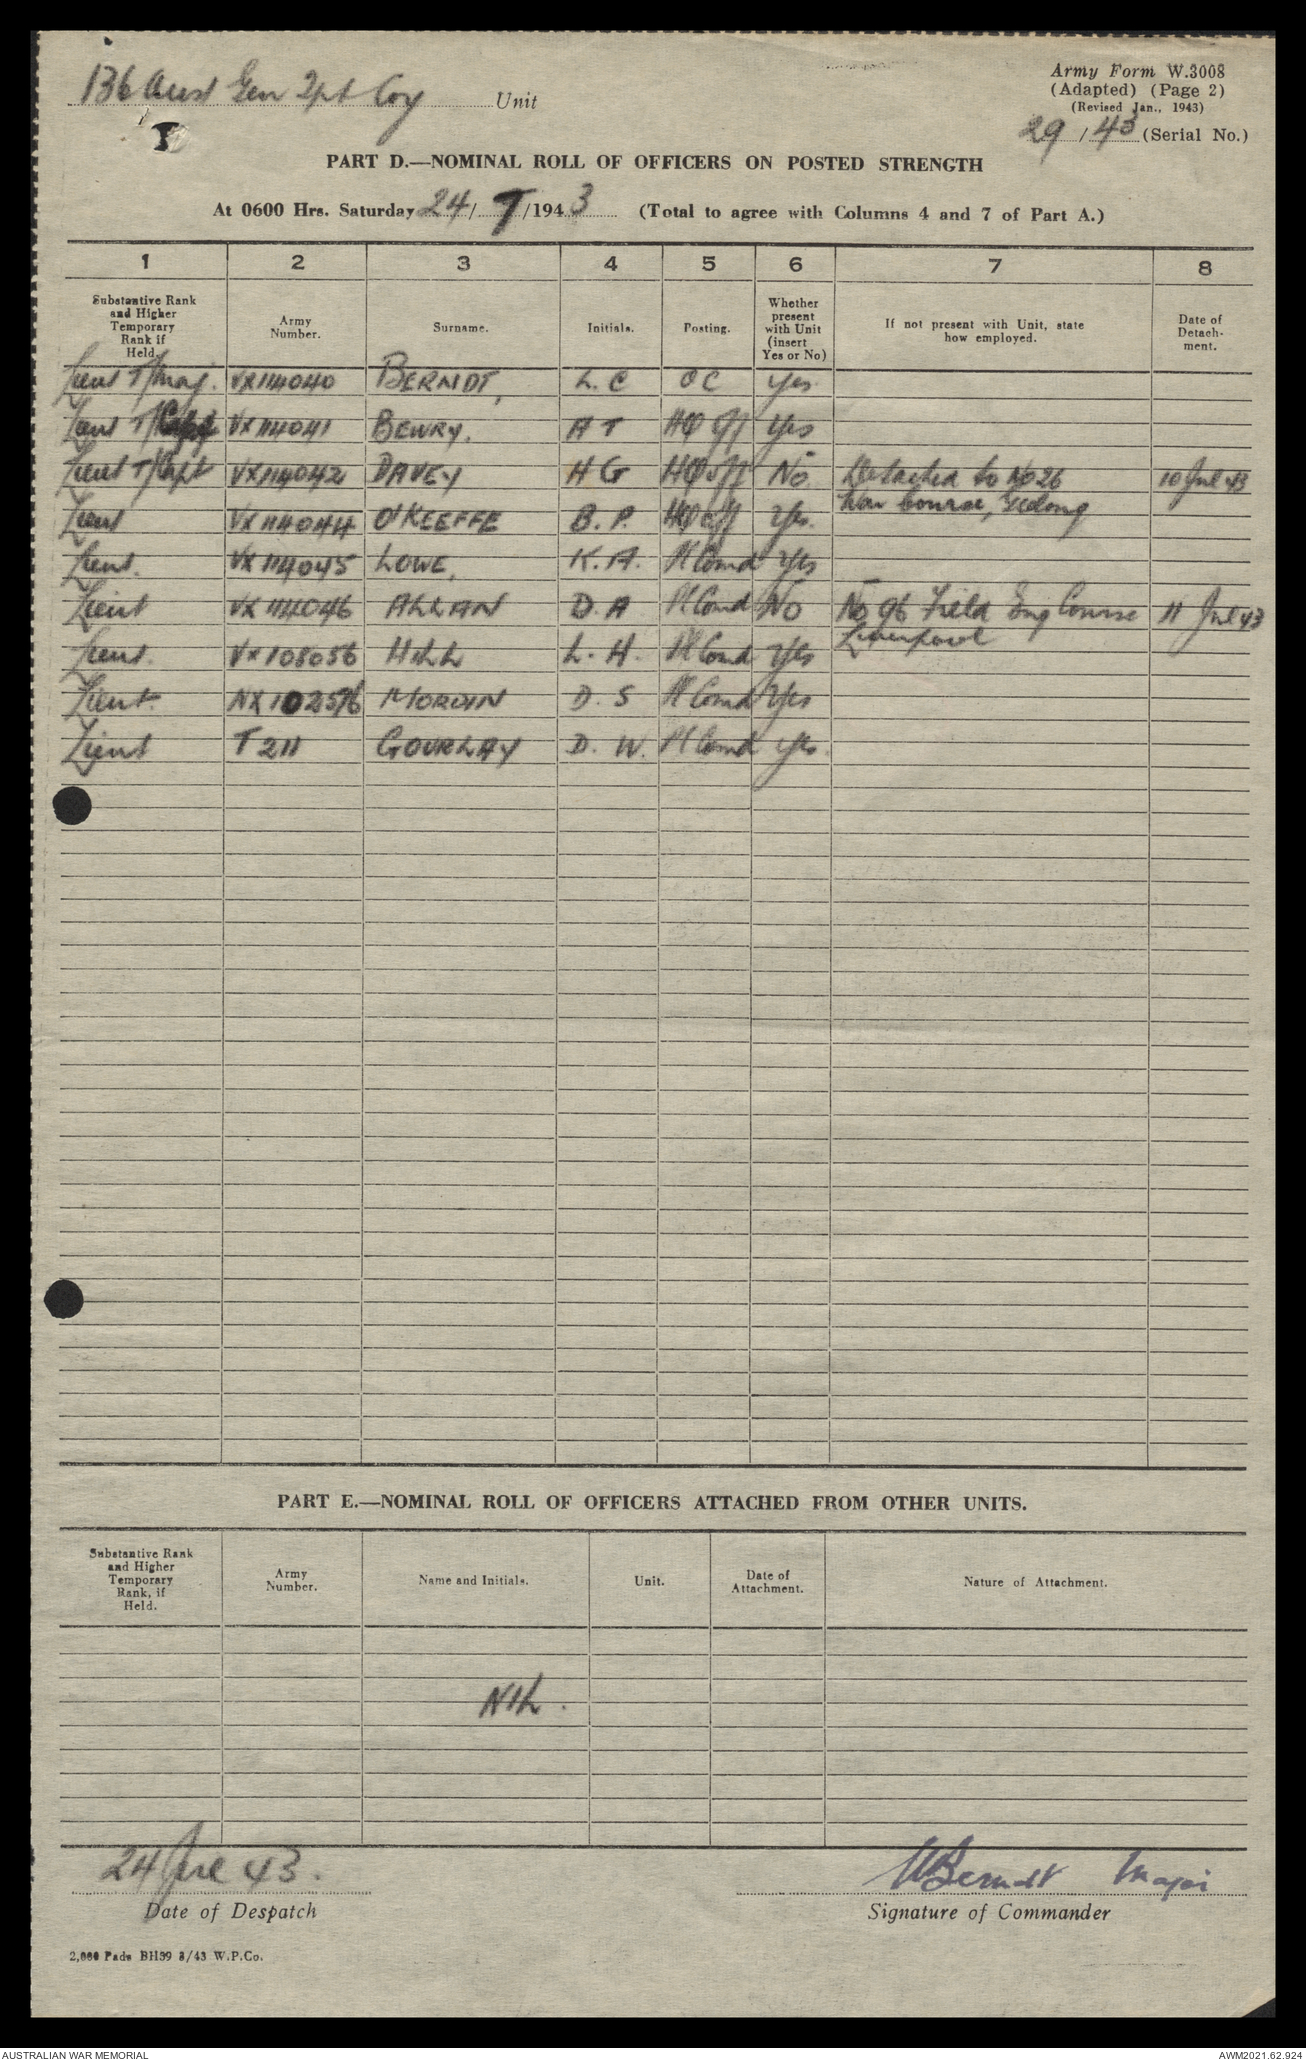 136 Aust Gen Tpt Coy Unit
Army Form W.3008
(Adapted) (Page 2)
(Revised Jan., 1943)
29 / 43 (Serial No.)
PART D.—NOMINAL ROLL OF OFFICERS ON POSTED STRENGTH
At 0600 Hrs. Saturday 24 / 7 /1943 (Total to agree with Columns 4 and 7 of Part A.)
1 2 3 4 5 6 7 8
Substantive Rank and Higher Temporary Rank if Held. Army Number. Surname. Initials. Posting. Whether present with Unit (insert Yes or No) If not present with Unit, state how employed. Date of Detachment.
Lieut T/Maj. VX114040 BERNDT, L. C OC Yes
Lieut T/Capt VX114041 BEWRY. A T HQ Off Yes
Lieut T/Capt VX114042 DAVEY H G HQ Off No Detached to No 26 10 Jul 43
War Course, Geelong
Lieut VX114044 O'KEEFFE B. P. HQ Off Yes.
Lieut. VX114045 LOWE, K. A. Pl Comd Yes
Lieut VX114046 ALLAN D. A Pl Comd No No 96 Field Eng Course 11 Jul 43
Liverpool
Lieut. VX108056 HILL L. H. Pl Comd Yes
Lieut. NX102576 MORDIN D. S Pl Comd Yes
Lieut T 211 GOURLAY D. W. Pl Comd Yes.
PART E.—NOMINAL ROLL OF OFFICERS ATTACHED FROM OTHER UNITS.
Substantive Rank and Higher Temporary Rank, if Held. Army Number. Name and Initials. Unit. Date of Attachment. Nature of Attachment.
NIL.
24 Jul 43. LBerndt Major
Date of Despatch Signature of Commander
2,000 Pads BH39 3/43 W.P.Co.
AUSTRALIAN WAR MEMORIAL AWM2021.62.924